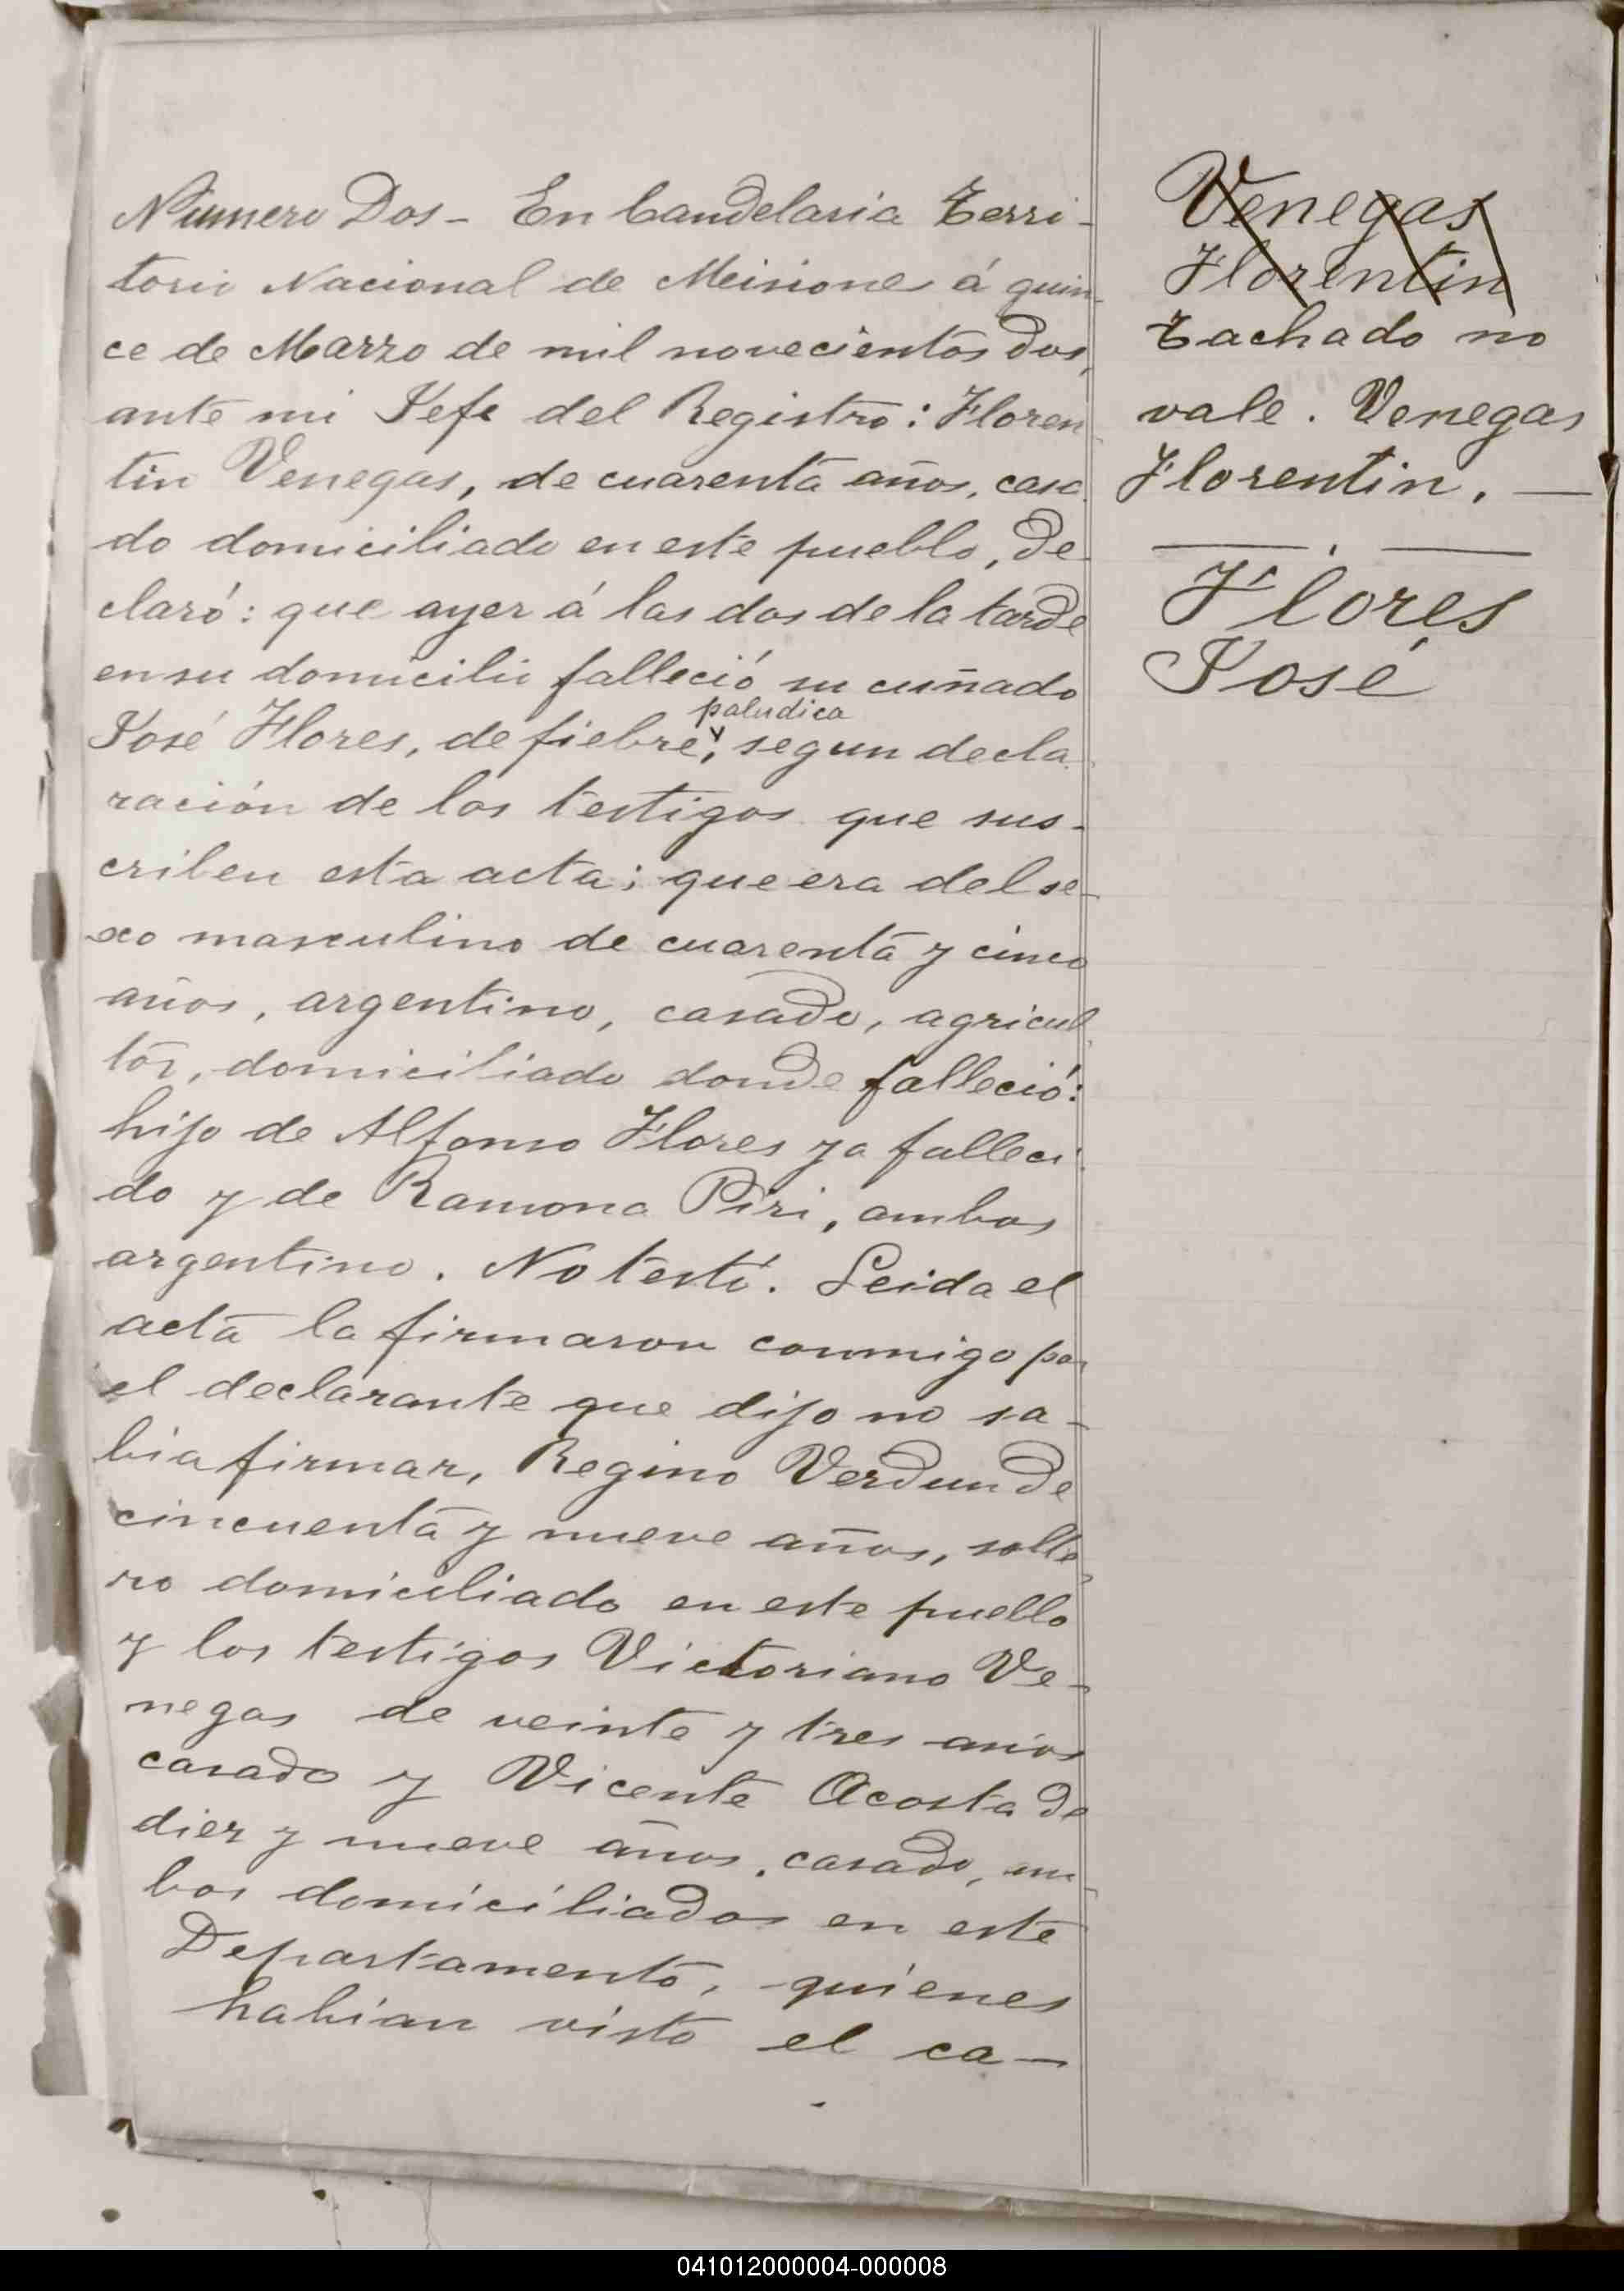 Numero Dos - En Candelaria Terri-
torio Nacional de Meisiones á quin-
ce de Marzo de mil novecientos dos,
ante mi Jefe del Registro: Floren
tin Venegas, de cuarenta años, casa
do domiciliado en este pueblo, de-
claró: que ayer á las dos de la tarde
en su domicilio falleció su cuñado
paludica
José Flores, de fiebre, segun decla
ración de los testigos que sus-
criben esta acta; que era del se-
xo masculino de cuarenta y cinco
años, argentino, casado, agricul
tor, domiciliado donde falleció:
hijo de Alfonso Flores ya falleci
do y de Ramona Piri, ambos
argentino. No testó. Leida el
acta la firmaron conmigo por
el declarante que dijo no sa-
bia firmar, Regino Verdun de
cincuenta y nueve años, solte
ro domiciliado en este pueblo
y los testigos Victoriano Ve-
negas de veinte y tres años
casado y Vicente Acosta de
diez y nueve años, casado, am-
bos domiciliados en este
Departamento, quienes
habian visto el ca-
Venegas
Florentin
Tachado no
vale. Venegas
Florentin. —
Flores
José
041012000004-000008